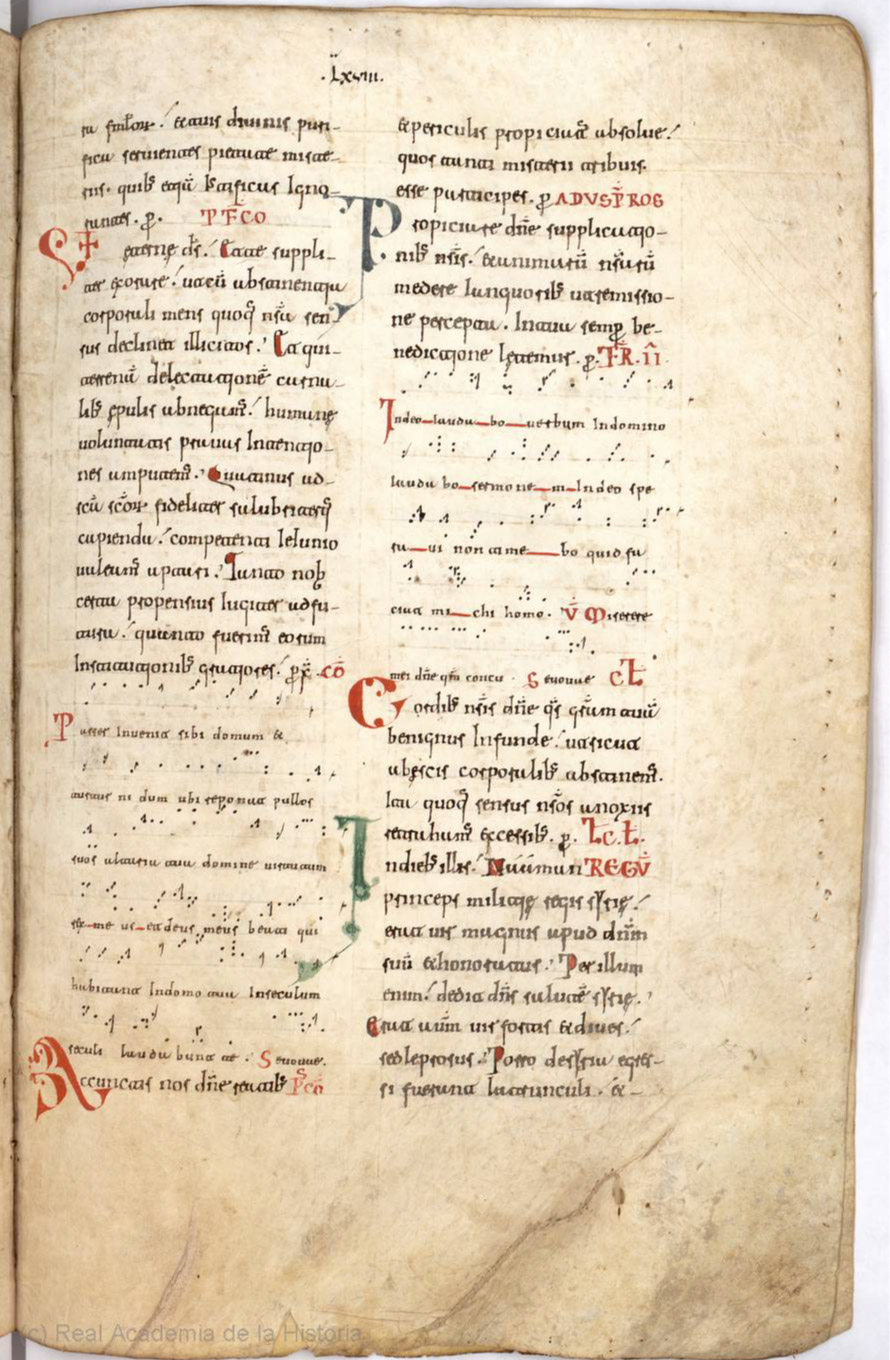 .Lxviii.
ra famlor. & auis diuinis puri-
fica seruientes pietate miste-
riis. quib etia iustificas Igno-
rantes. p. PFCO
eterne ds. Et te suppli-
ter exorare. ut cū abstinentia
corporali mens quoq nsa sen-
sus declinet illicitos. Et qui
terrenā delectationē carna-
lib epulis abnegam. humane
uoluntatis prauas Intentio-
nes amputem. Quatinus ad
scā scor fideliter salubriterq
capienda. competenti Ieiunio
ualeam aptari. Tanto nob
certi propensius Iugiter adfu-
tura. quanto fuerim eorum
Institutionib gratiores. p x. CO
Passer Inuenit sibi domum &
turtur nidum ubi reponat pullos
suos altaria tua domine uirtutum
rex me us et deus meus beati qui
habitant In domo tua In seculum
seculi laudabunt te. Seuouae.
Accuntis nos dne reatib PCO
& periculis propiciat absolue.
quos tanti misterii tribuis
esse participes. p ADUSPROS
Propiciare dne supplicatio-
nib nsis. & animarū nsarū
medere languorib ut remissio-
ne percepta. In tua semp be-
nedictione letemur. p. FR.II
In deo laudabo uerbum In domino
laudabo sermonem In deo spe
raui non timebo quid fa
ciat michi homo. V Miserere
mei dne qm concu. Seuouae CL
Cordib nsis dne qs gratiam tuā
benignus Infunde. ut sicut
ab escis corporalib abstinem.
Ita quoq sensus nsos a noxiis
retraham excessib. p. Lc.L.
In dieb illis. Naaman REGU
princeps milicie regis sirie.
erat uir magnus apud dnm
suū & honoratus. Per illum
enim. dedit dns salutē sirie.
Erat autm uir fortis & diues.
sed leprosus. Porro de siria egres-
si fuerant latrunculi. & -
(c) Real Academia de la Historia